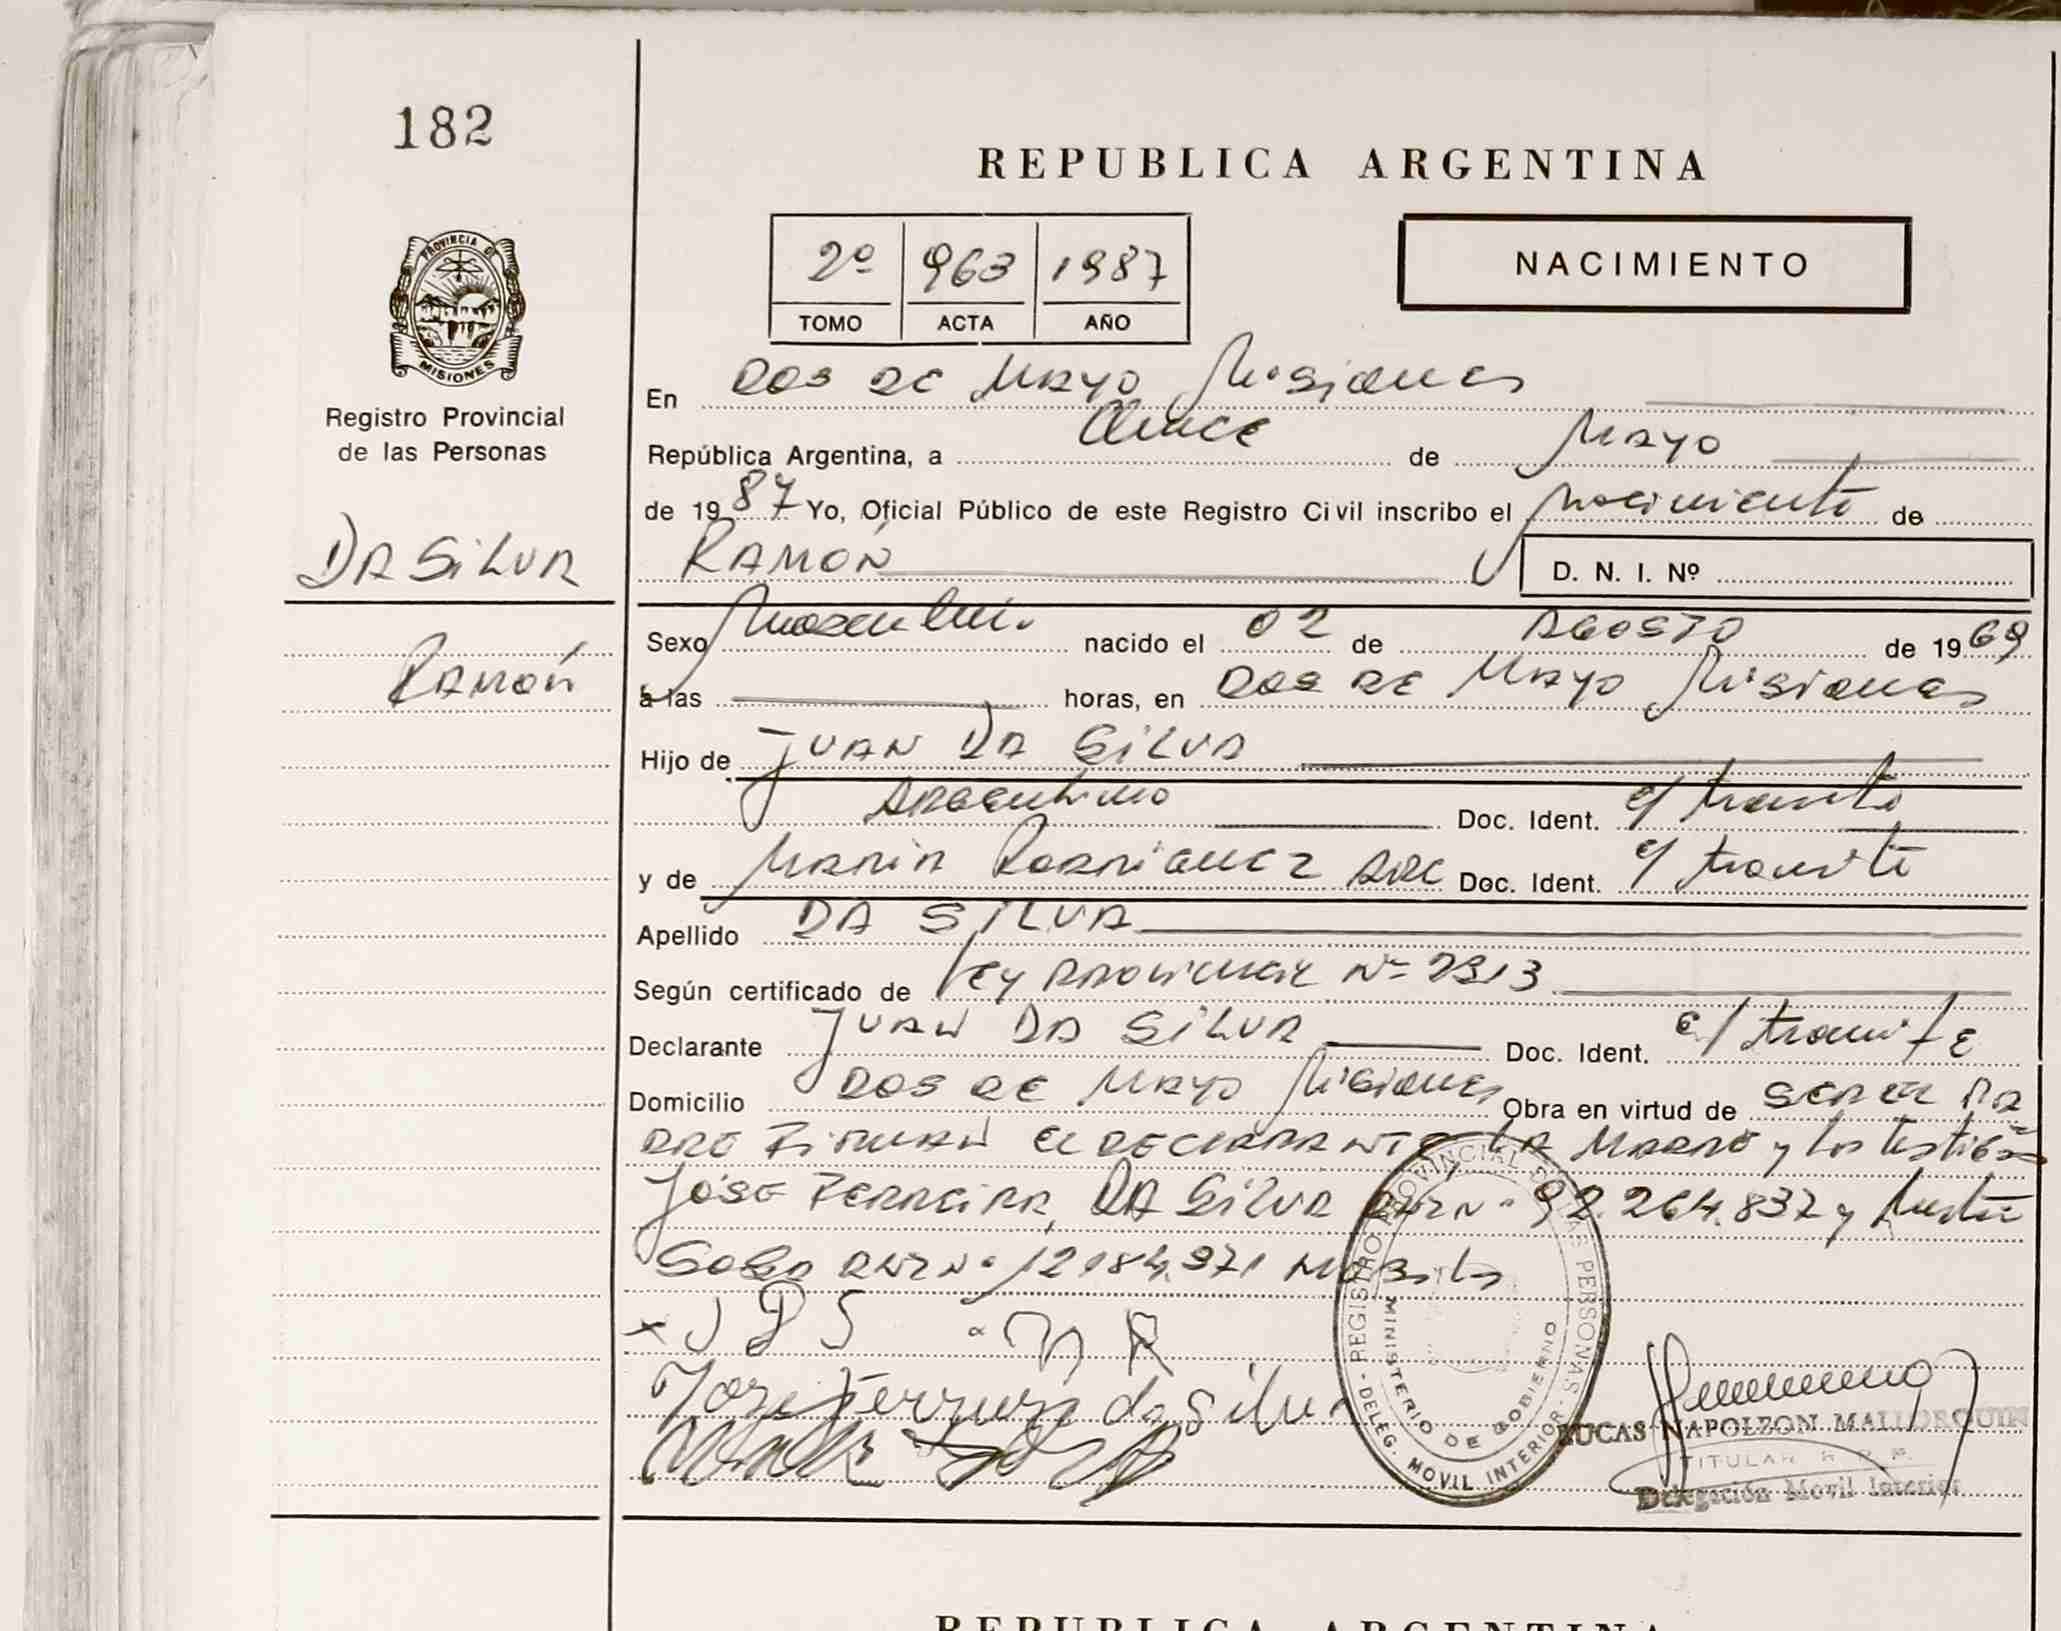 182
REPUBLICA ARGENTINA
2º 963 1987
TOMO ACTA AÑO
NACIMIENTO
PROVINCIA DE
MISIONES
Registro Provincial
de las Personas
En Dos de Mayo Misiones
República Argentina, a Quince de Mayo
de 1987 Yo, Oficial Público de este Registro Civil inscribo el nacimiento de
DA SILVA
RAMÓN D. N. I. Nº
Ramón
Sexo Masculino nacido el 02 de AGOSTO de 1969
a las horas, en Dos de Mayo Misiones
Hijo de JUAN DA SILVA
Argentino Doc. Ident. e/ tramite
y de Maria Rodriguez ARG Doc. Ident. e/ tramite
Apellido DA SILVA
Según certificado de Ley Provincial Nº 2313
Declarante JUAN DA SILVA Doc. Ident. e/ tramite
Domicilio Dos de Mayo Misiones Obra en virtud de SER EL PA
DRE FIRMAN EL DECLARANTE LA MADRE y los testigos
José FERREIRA DA SILVA DNI Nº 92.264.837 y
DNI Nº 12184.971
x J D S M R
Jose Ferreira da Silva
REGISTRO PROVINCIAL DE LAS PERSONAS
MINISTERIO DE GOBIERNO
DELEG. MOVIL INTERIOR
LUCAS NAPOLEON MALLORQUIN
TITULAR R. P. P.
Delegación Movil Interior
REPUBLICA ARGENTINA